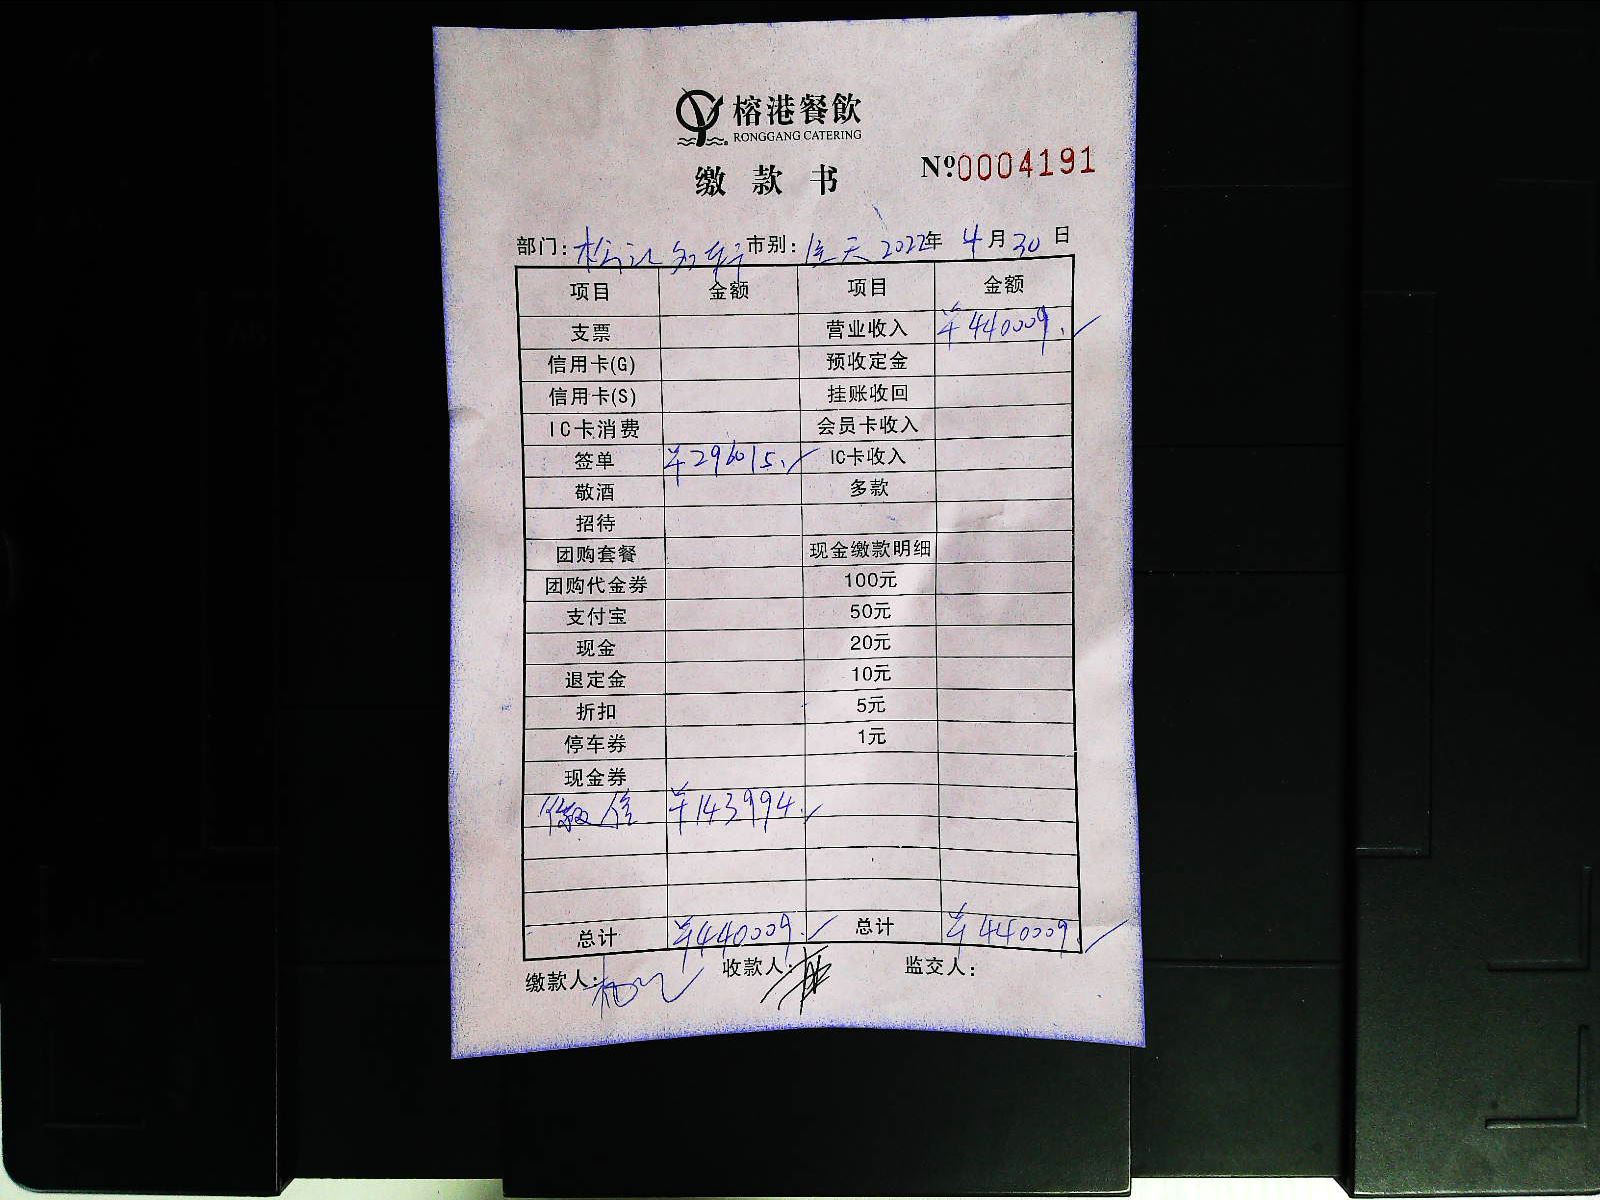 榕港餐飲
RONGGANG CATERING
缴款书 Nº 0004191
部门: 市别: 全天 2022年 4月30日
项目 金额 项目 金额
支票 营业收入 ¥440009.
信用卡(G) 预收定金
信用卡(S) 挂账收回
IC卡消费 会员卡收入
签单 ¥296015. IC卡收入
敬酒 多款
招待
团购套餐 现金缴款明细
团购代金券 100元
支付宝 50元
现金 20元
退定金 10元
折扣 5元
停车券 1元
现金券
微信 ¥143994.
总计 ¥440009. 总计 ¥440009.
缴款人: 收款人: 监交人: